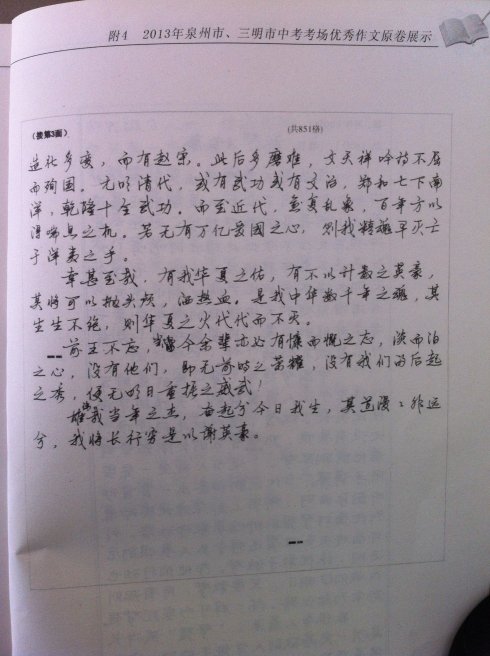 附4 2013年泉州市、三明市中考考场优秀作文原卷展示
(接第3面) (共851格)
造化多变,而有赵宋。此后多磨难,文天祥吟诗不屈
而殉国。元明清代,或有武功或有文治,郑和七下南
洋,乾隆十全武功。而至近代,意复乱象,百年方以
得喘息之机。若无有万亿爱国之心,则我精魂早灭亡
于洋夷之手。
幸甚至哉,有我华夏之佑,有不以计数之英豪,
其将可以抛头颅,洒热血。是我中华数千年之魂,其
生生不绝,则华夏之火代代而不灭。
前王不忘,当今余辈亦必有慷而慨之志,淡而泊
之心,没有他们,即无前时之荣耀,没有我们的后起
之秀,便无明日重振之威武!
雄哉我当年之志,奋起兮今日我生,其道漫漫
兮,我将长行穷是以谢英豪。